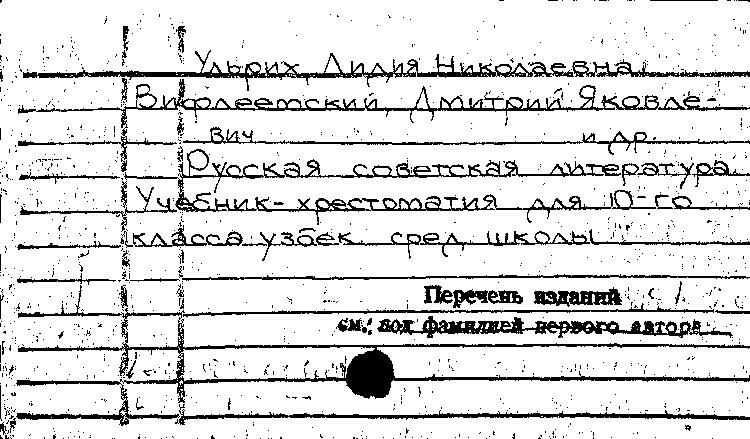 Ульрих, Лидия Николаевна,
Вифлеемский, Дмитрий Яковле-
вич и др.
Русская советская литература.
Учебник-хрестоматия для 10-го
класса узбек. сред. школы
Перечень изданий
см. под фамилией первого автора